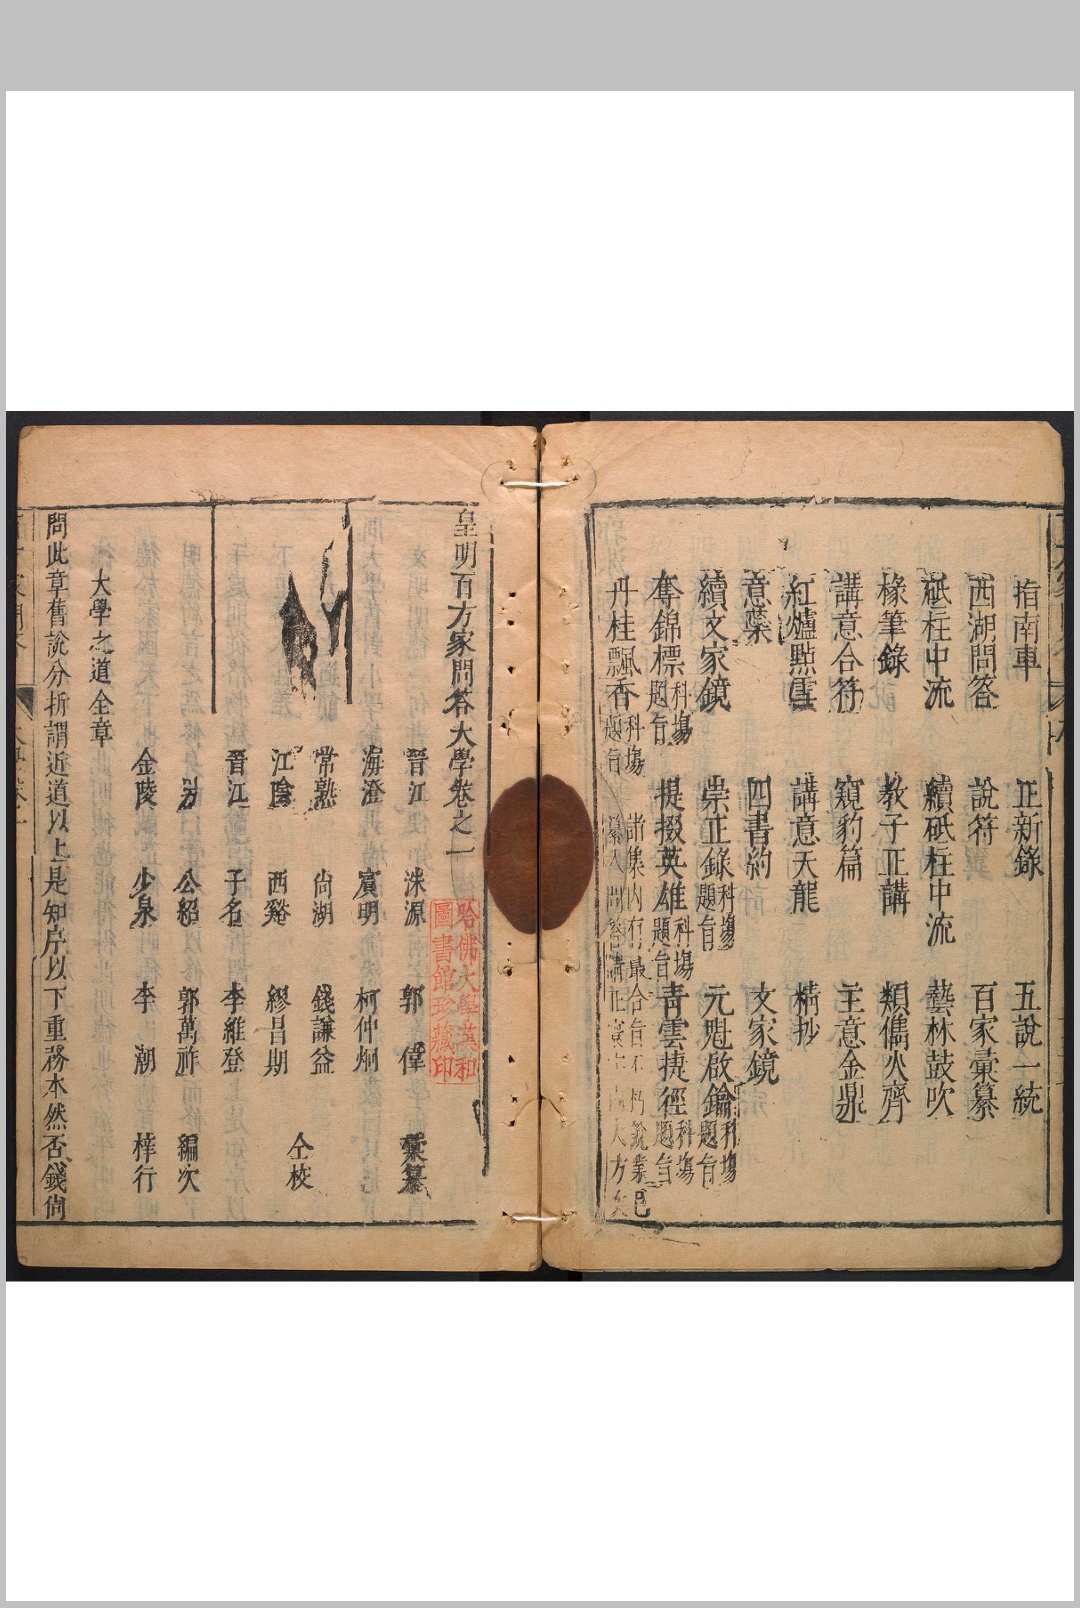 指南車 正新錄 五說一統
西湖問答 說符 百家彙纂
砥柱中流 續砥柱中流 藝林鼓吹
椽筆錄 教子正講 類儁炎齊
講意合符 窺豹篇 主意金鼎
紅爐點雪 講意天龍 精抄
意葉 四書約 文家鏡
續文家鏡 崇正錄科塲題旨 元魁啟鑰科塲題旨
奪錦標科塲題旨 提掇英雄科塲題旨 青雲捷徑科塲題旨
丹桂飄香科塲題旨
諸集內有最合旨不朽說業已
皇明百方家問答大學卷之一
晉江 洙源 郭偉 彙纂
海澄 賓明 柯仲炯
常熟 尙湖 錢謙益
江陰 西谿 繆昌期 仝校
晉江 子名 李維登
公紹 郭萬祚 編次
金陵 少泉 李潮 梓行
大學之道全章
問此章舊說分析謂近道以上是知序以下重務本然否錢尙
哈佛大學漢和
圖書館珍藏印